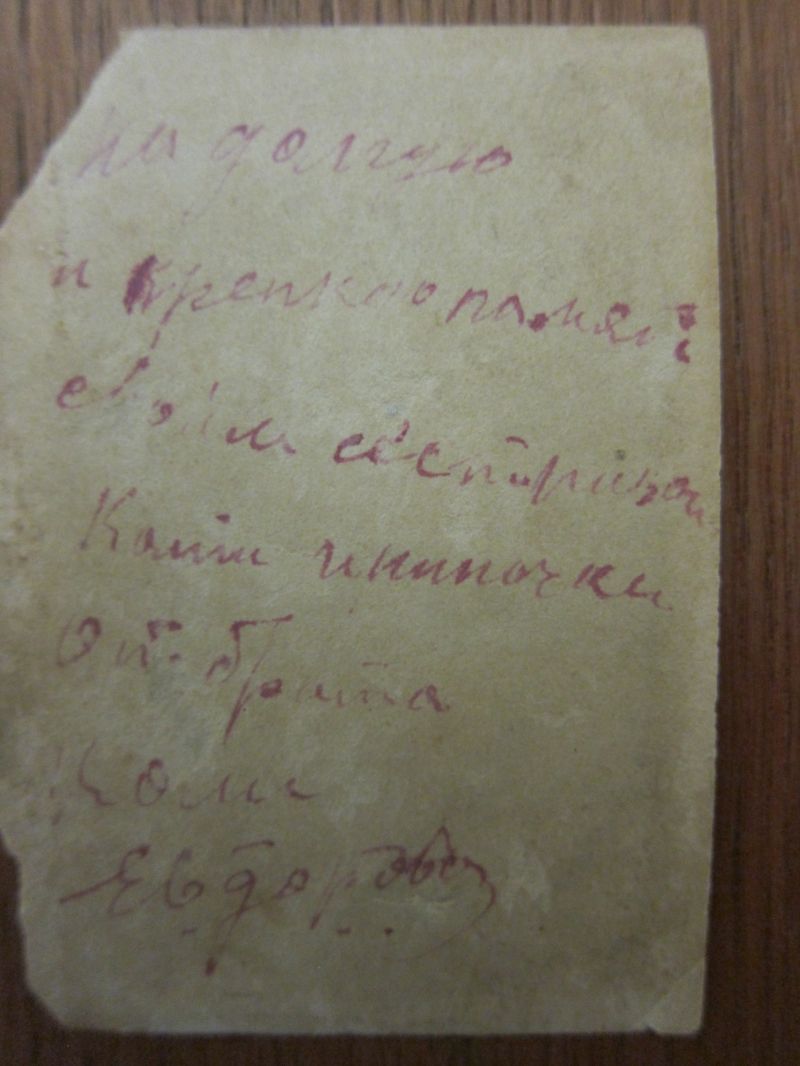 на долгую
и крепкую память
своим сестрицам
Кати и нипочки
От брата
Коли